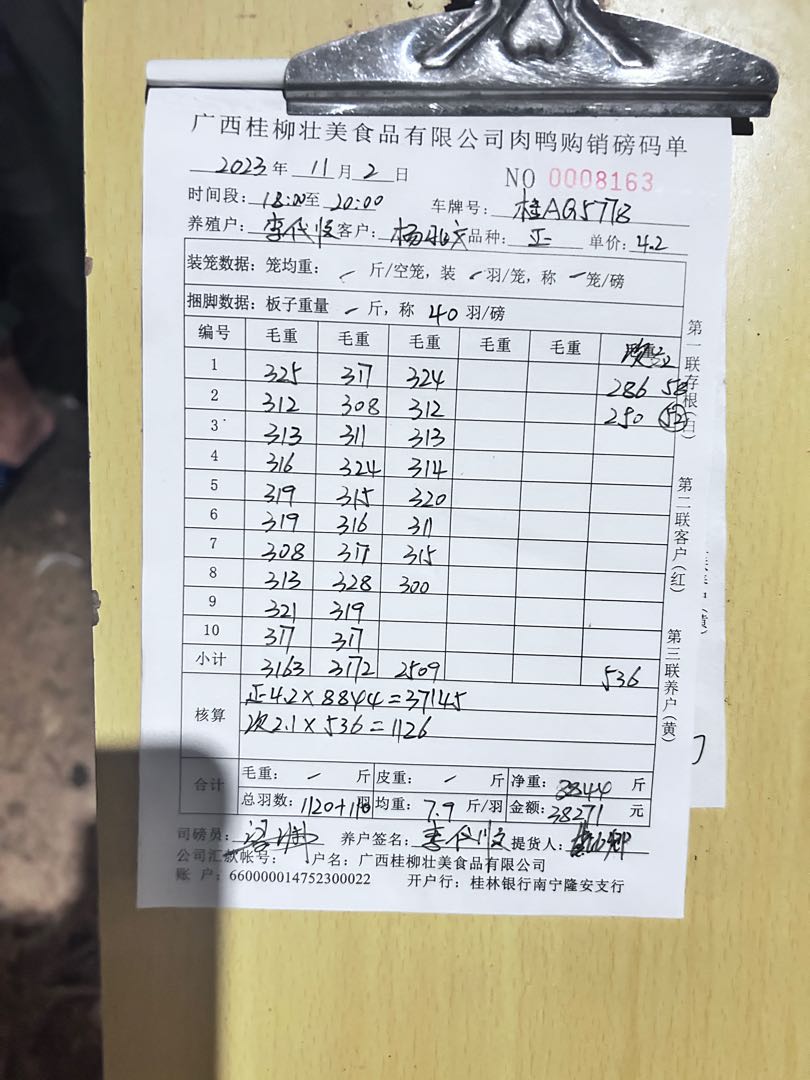 广西桂柳壮美食品有限公司肉鸭购销磅码单
2023年 11月2日 NO 0008163
时间段：18:00至20:00 车牌号：桂AQ5778
养殖户：李代 客户：杨 品种：正 单价：4.2
装笼数据：笼均重： / 斤/空笼，装 / 羽/笼，称 / 笼/磅
捆脚数据：板子重量 / 斤，称 40 羽/磅
编号 毛重 毛重 毛重 毛重 毛重
1 325 317 324 286 58
2 312 308 312 250 52
3 313 311 313
4 316 324 314
5 319 315 320
6 319 316 311
7 308 317 315
8 313 328 300
9 321 319
10 317 317
小计 3163 3172 2509 536
核算 正4.2×8844=37145
次2.1×536=1126
合计 毛重： / 斤 皮重： / 斤 净重：8844 斤
总羽数：1120+110 均重：7.9斤/羽 金额：38271 元
司磅员： 养户签名：李代 提货人：
公司汇款帐号： 户名：广西桂柳壮美食品有限公司
账 户：660000014752300022 开户行：桂林银行南宁隆安支行
第一联存根(白)
第二联客户(红)
第三联养户(黄)